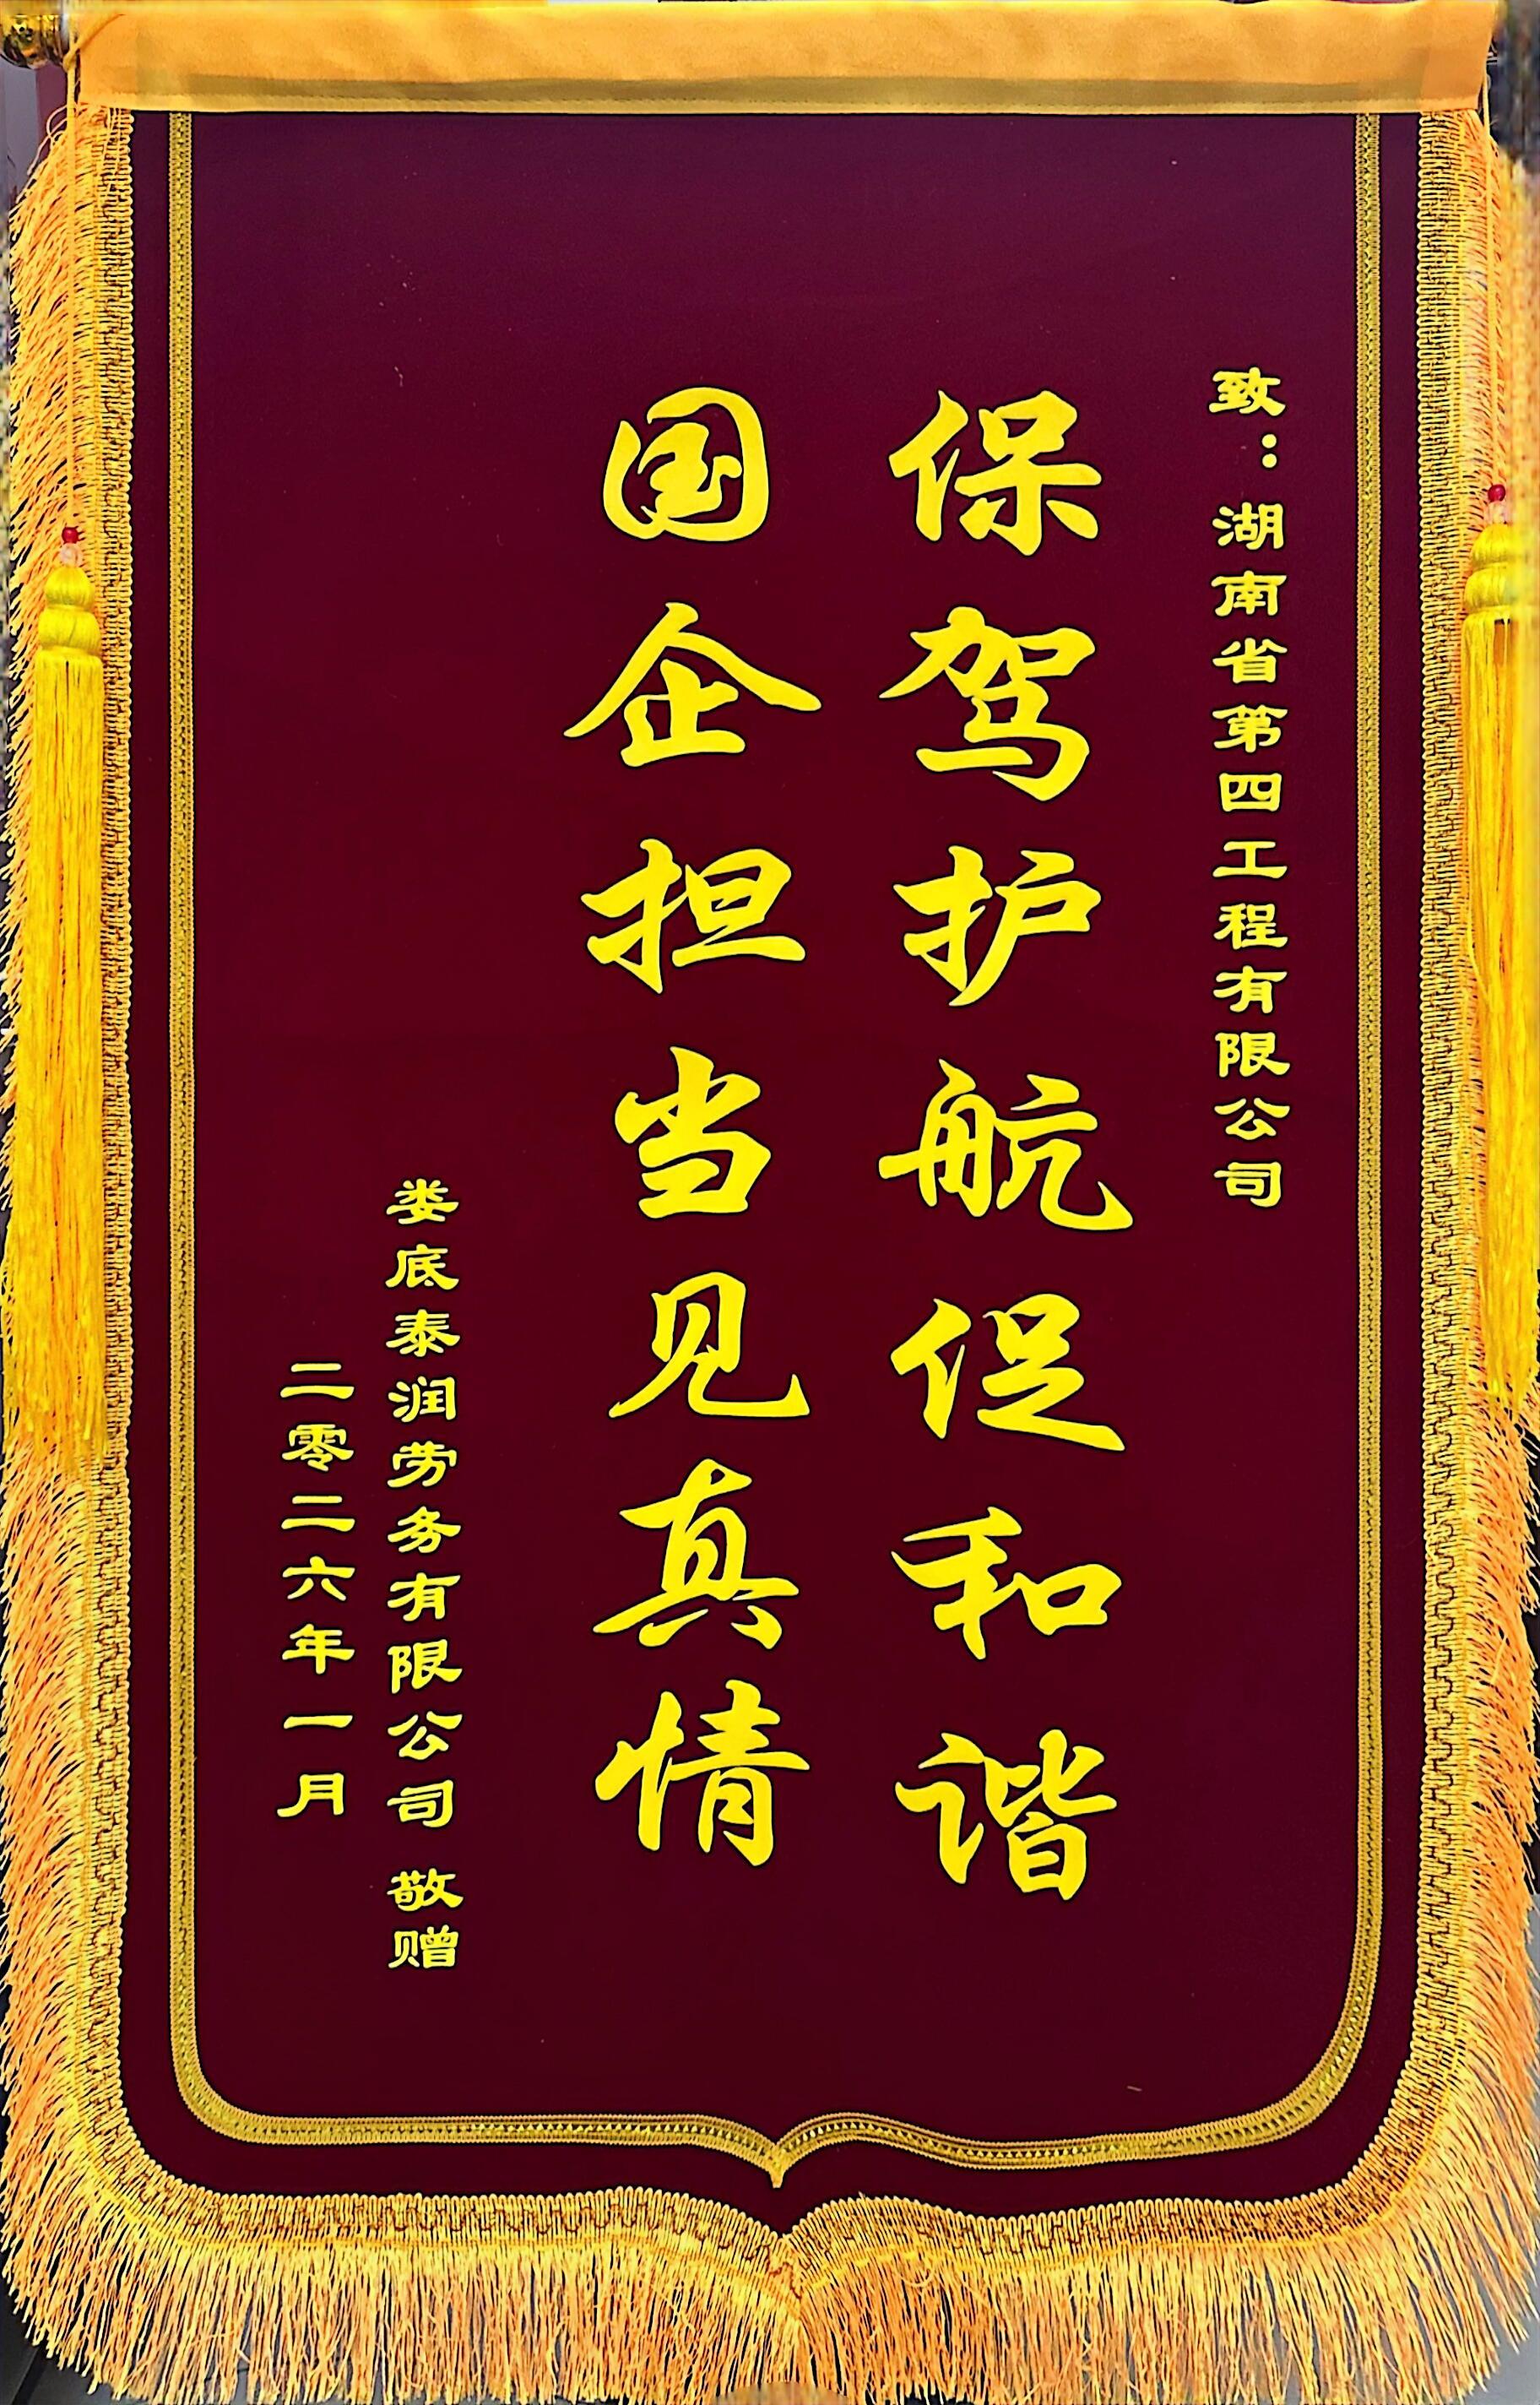 致：湖南省第四工程有限公司
保驾护航促和谐
国企担当见真情
娄底泰润劳务有限公司 敬赠
二零二六年一月